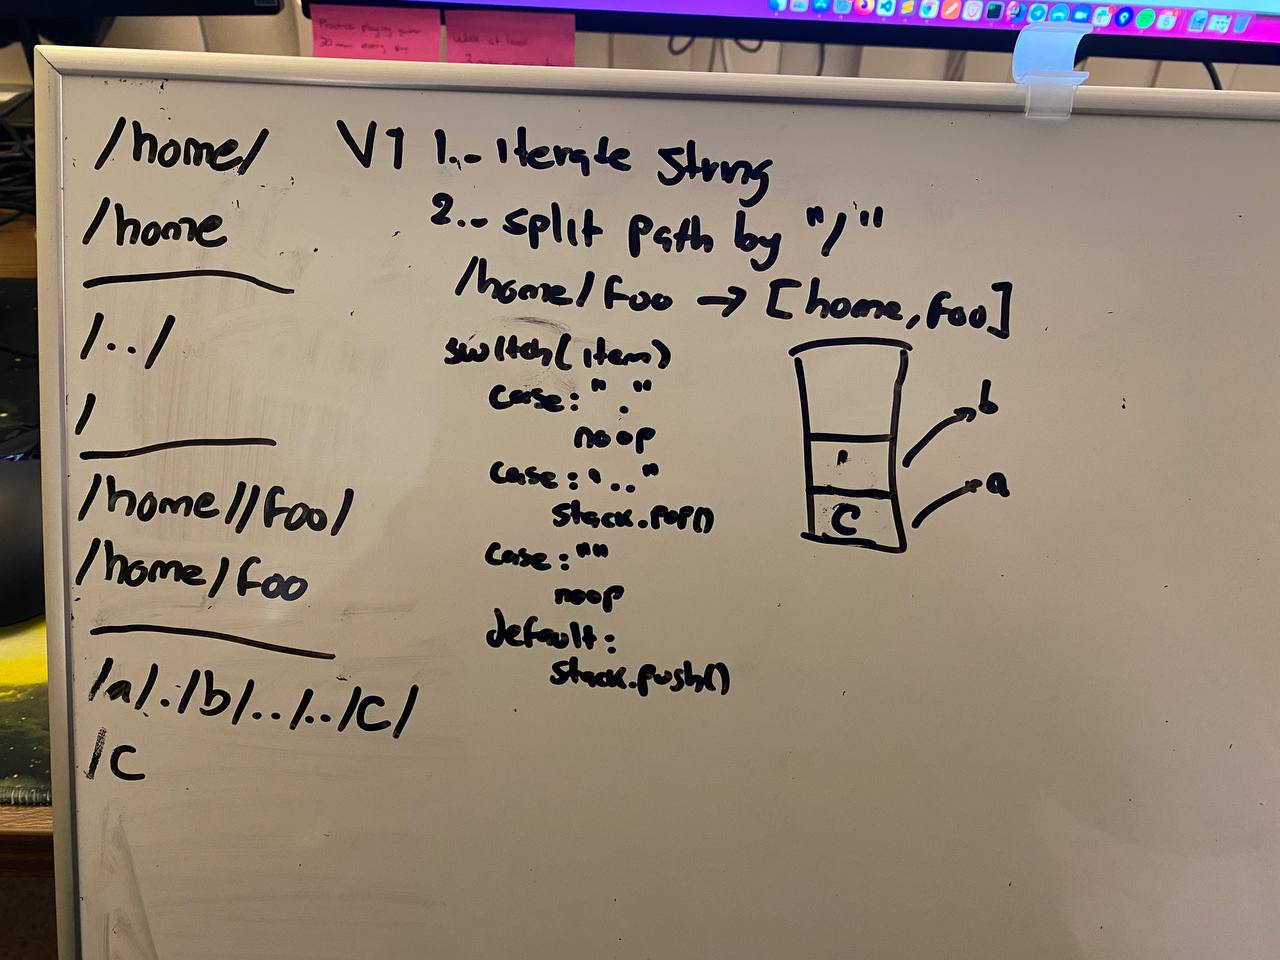 Practice playing guitar
20 min every day
Work at least
/home/
/home
/../
/
/home//foo/
/home/foo
/a/./b/../../c/
/c
V1 1.- iterate string
2.- split path by "/"
/home/foo → [home, foo]
switch(item)
case: "."
noop
case: '.."
stack.pop()
case: ""
noop
default:
stack.push()
b
a
C